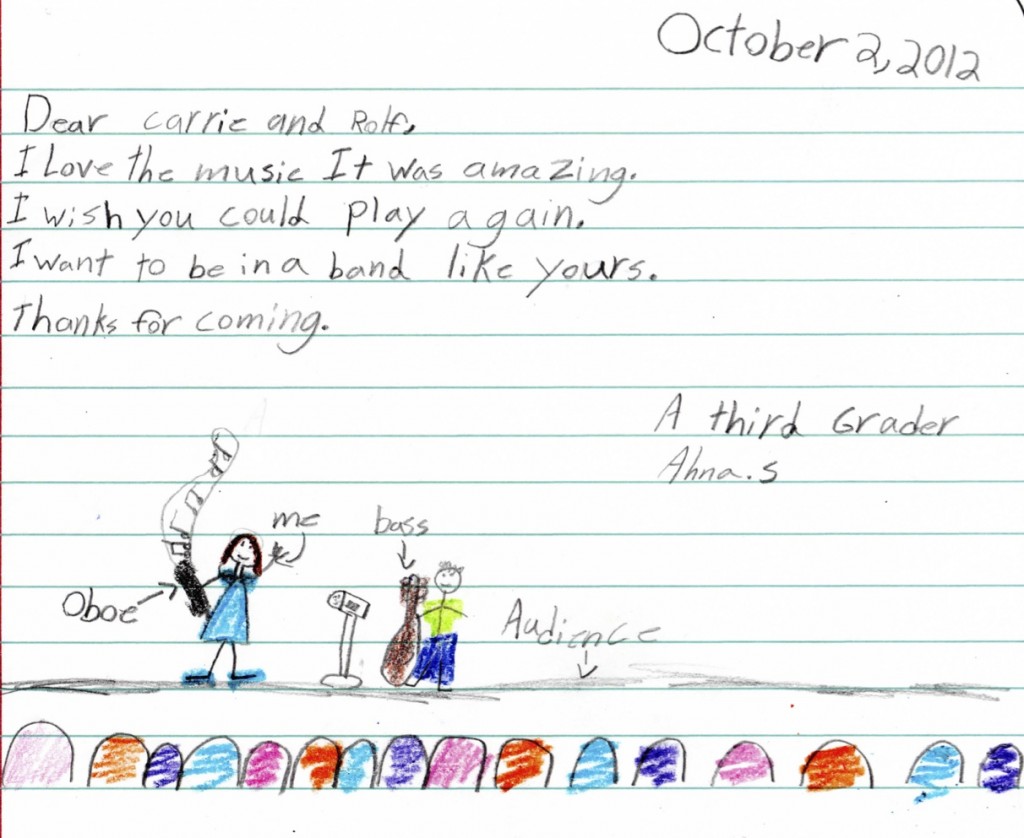 October 2, 2012
Dear Carrie and Rolf,
I Love the music It was amazing.
I wish you could play again.
I want to be in a band like yours.
Thanks for coming.
A third Grader
Ahna.S
me
bass
Oboe
Audience